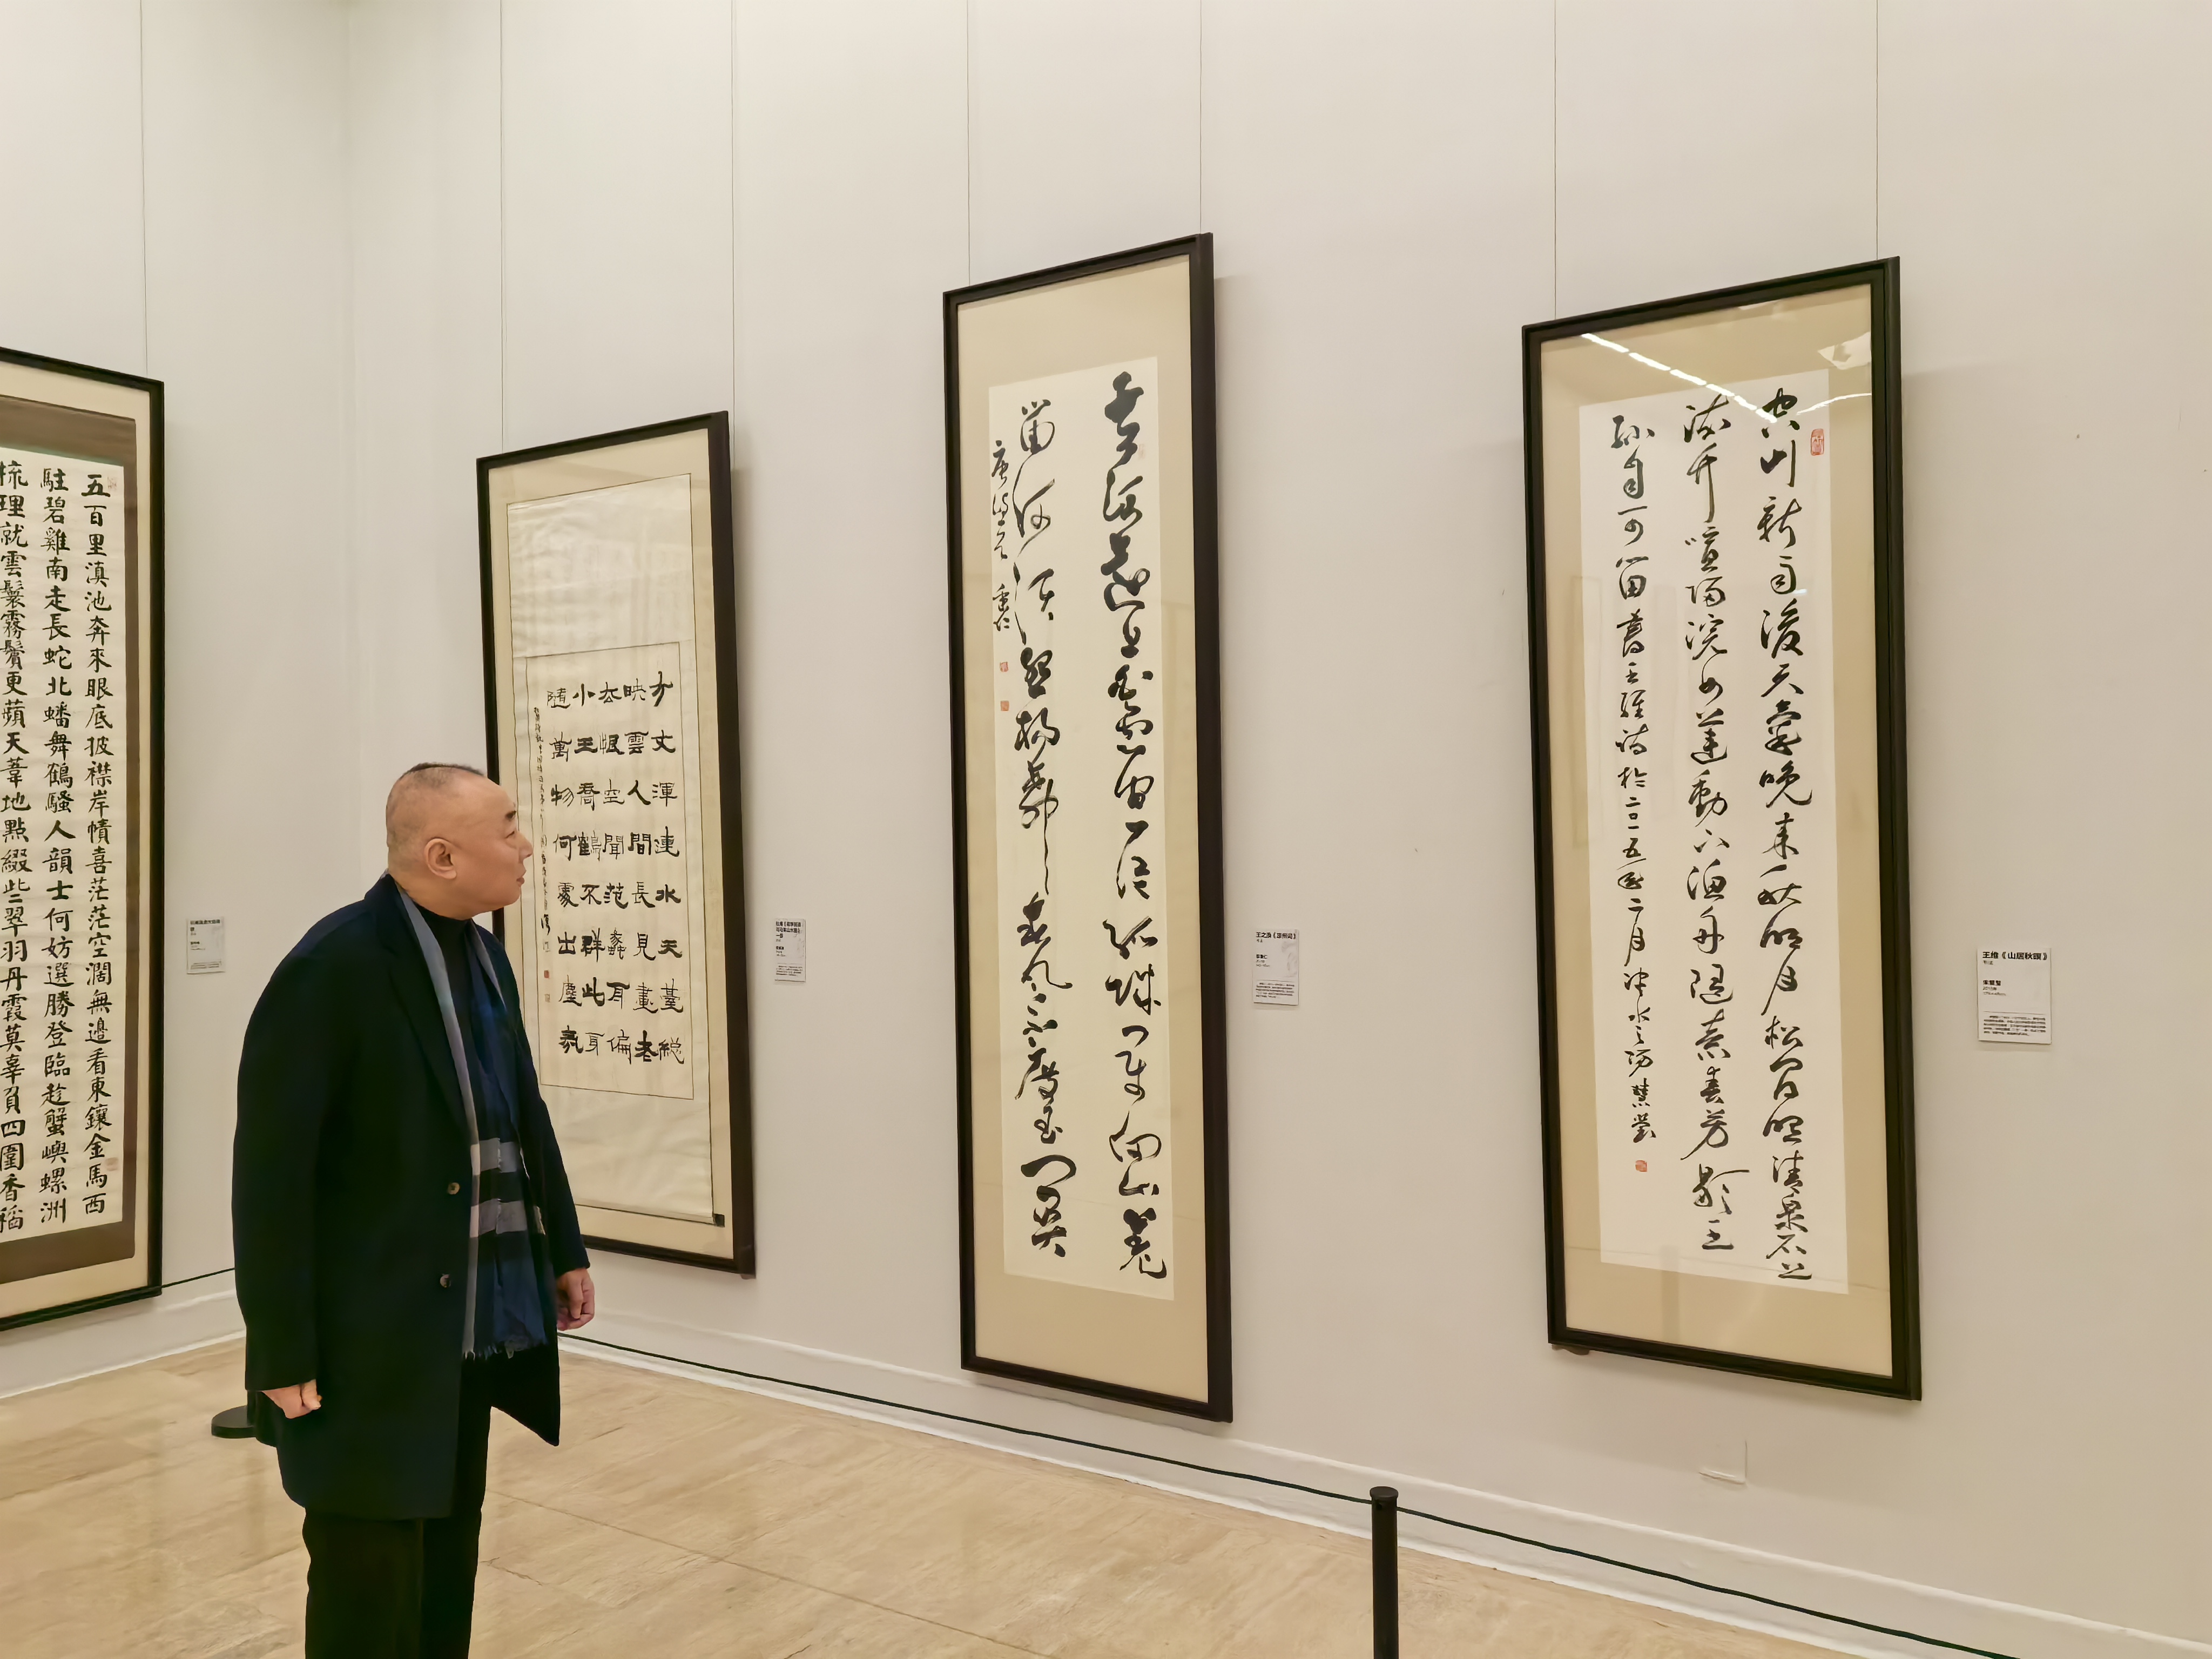 五百里滇池奔來眼底披襟岸幘喜茫茫空闊無邊看東鑲金馬西
駐碧雞南走長蛇北蟠舞鶴騷人韻士何妨選勝登臨趁蟹嶼螺洲
梳理就雲鬟霧鬢更蘋天葦地點綴些翠羽丹霞莫辜負四圍香稻
方丈渾連水天臺總
映雲人間長見畫老
去恨空聞范蠡舟偏
小王喬鶴不群此身
隨萬物何處出塵氛
黃河遠上白雲間一片孤城萬仞山羌
笛何須怨楊柳春風不度玉門關
王之涣《凉州词》
空山新雨後天氣晚來秋明月松間照清泉石上
流竹喧歸浣女蓮動下漁舟隨意春芳歇王
孫自可留書王維詩於二〇一五年二月
慧瑩
王维《山居秋暝》
书法
2015年